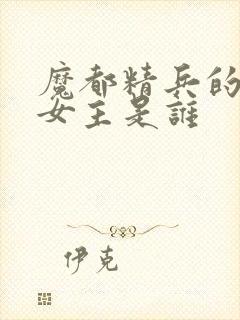 魔都精兵的
女主是誰
伊克